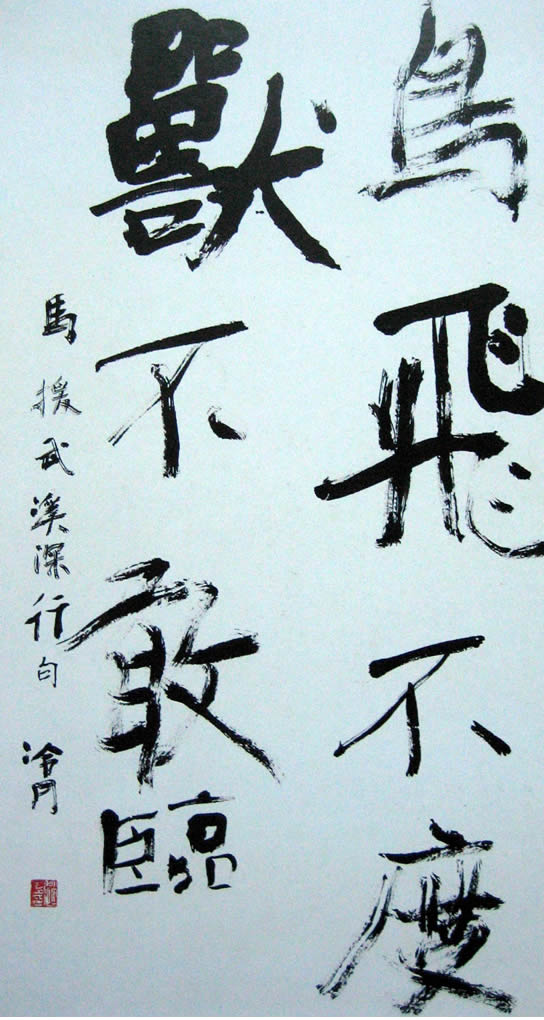 鳥飛不度
獸不敢臨
馬援武溪深行句
冷門